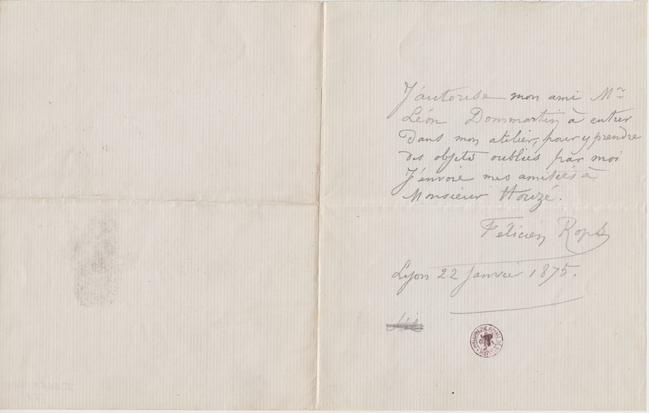 J'autorise mon ami Mr
Léon Dommartin à entrer
dans mon atelier, pour y prendre
des objets oubliés par moi
J'envoie mes amitiés à
Monsieur Houzé.
Félicien Rops
Lyon 22 Janvier 1875.